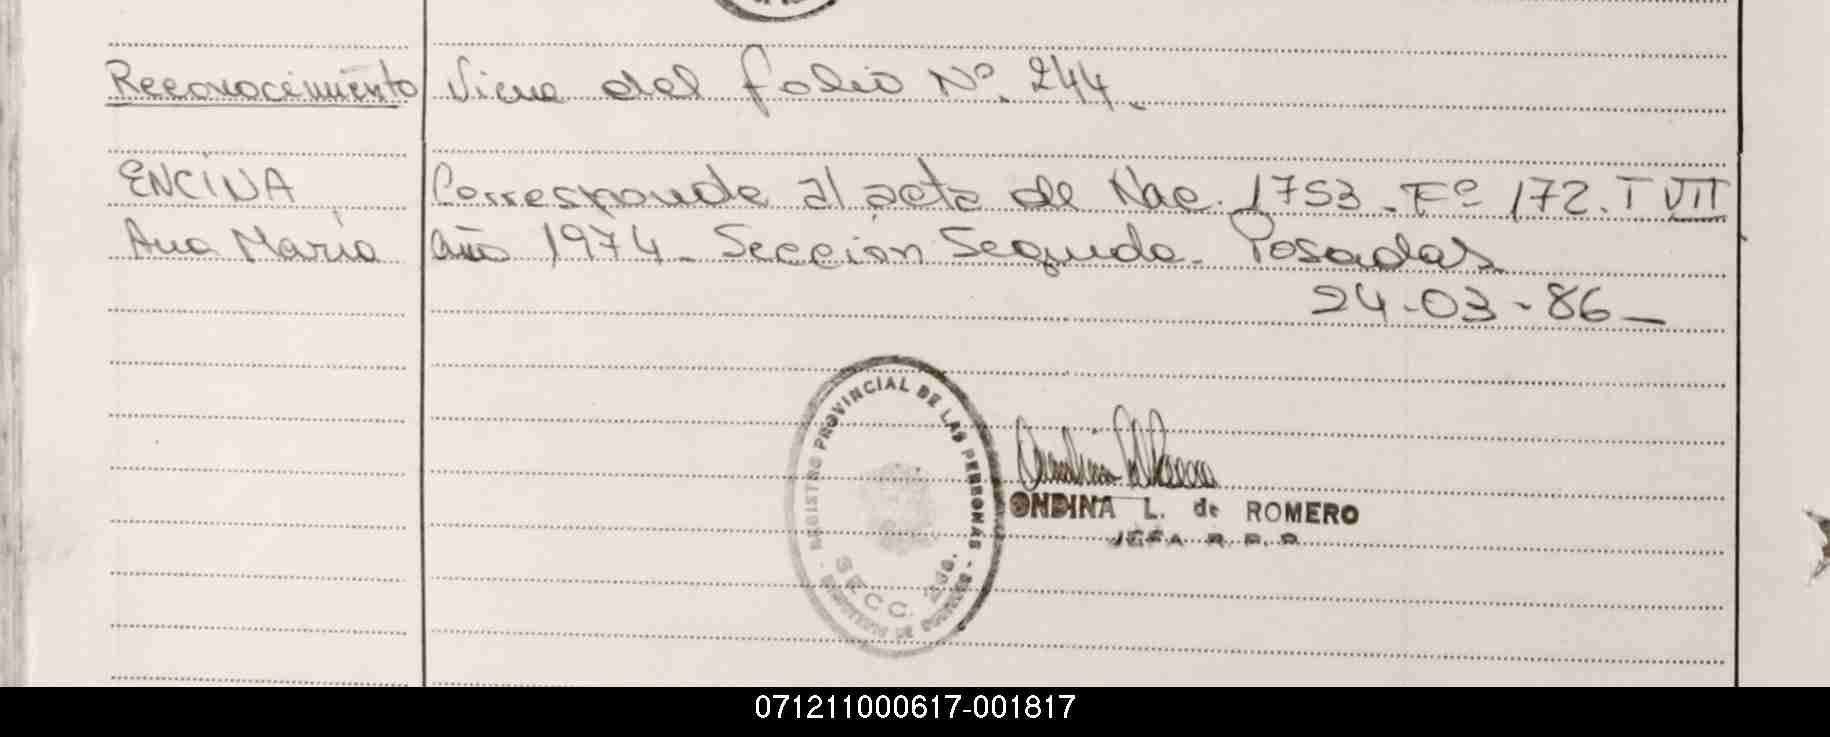 Reconocimiento Viene del folio Nº. 244.
ENCINA Corresponde al acta de Nac. 1753 - Fº 172. T VII
Ana María año 1974 - Sección Segunda - Posadas
24-03-86 -
REGISTRO PROVINCIAL DE LAS PERSONAS
SECC. 2da.
ONDINA L. de ROMERO
JEFA R. P. P.
071211000617-001817